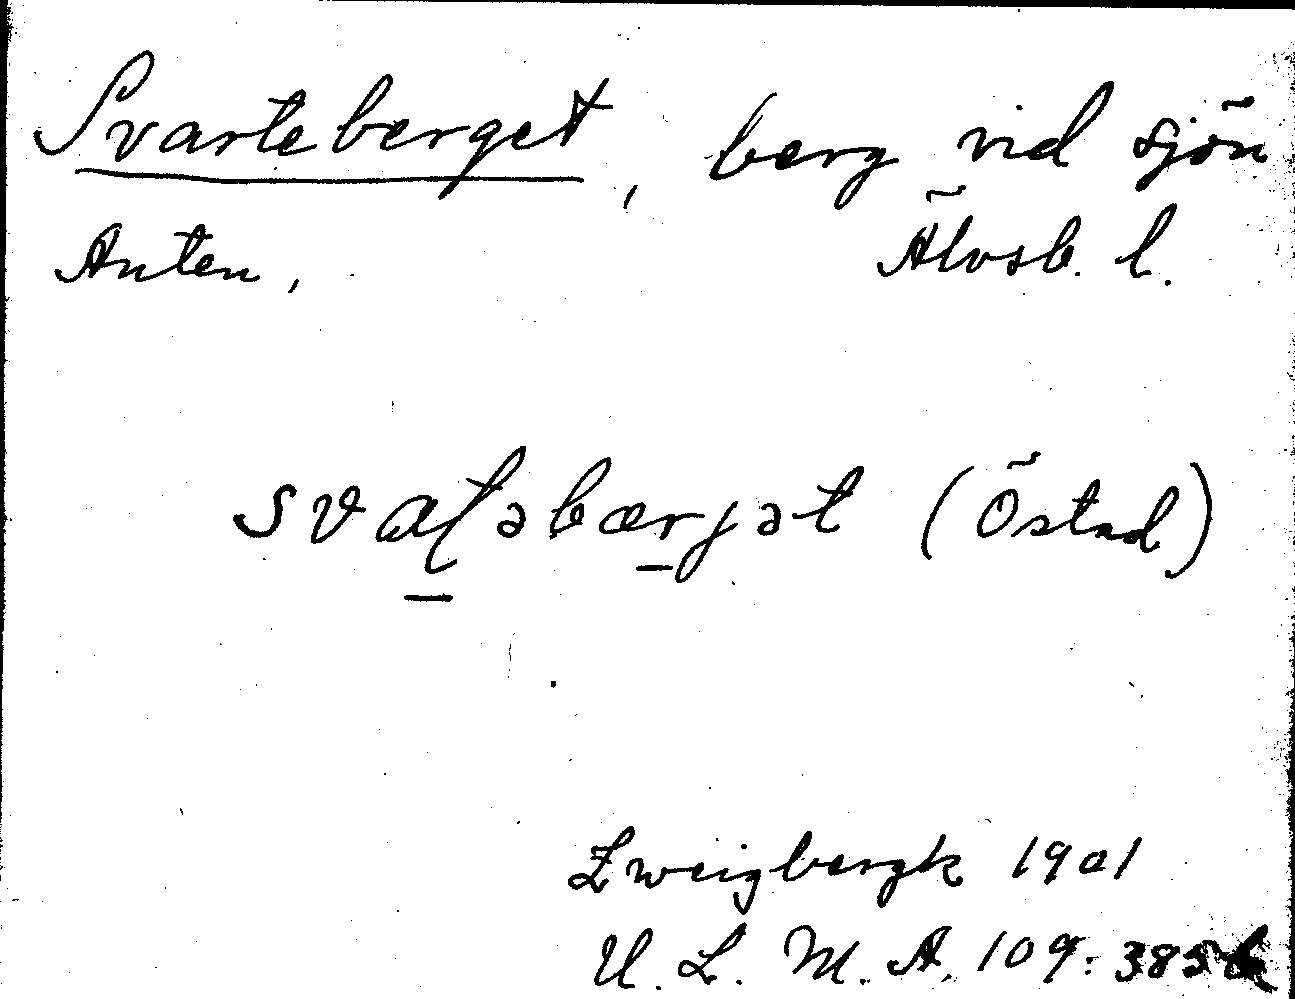 Svarteberget, berg vid sjön
Anten, Älvsb. l.
(Östad)
Zweigbergk 1901
U. L. M. A. 109: 385